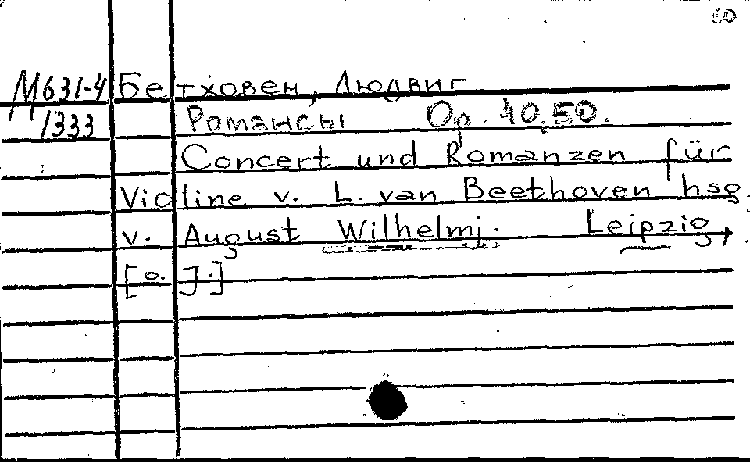 М631-4 Бетховен, Людвиг
1333 Романсы Op. 40.50.
Concert und Romanzen für
Violine v. L. van Beethoven hsg.
v. August Wilhelmj. Leipzig,
[o. J.]